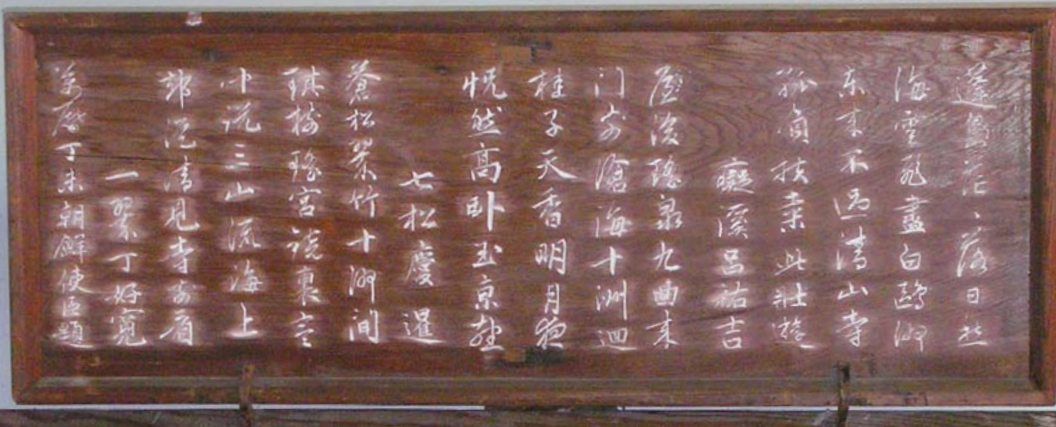 蓬島茫、落日愁
海雲飛盡白鷗洲
東來不過清山寺
孤負扶桑此壯遊
癡溪呂祐吉
壓後瑤泉九曲來
门前滄海十洲迴
桂子天香明月夜
恍然高卧玉京臺
七松慶暹
蒼松翠竹十洲间
琪樹瑤宮說裏言
說三山流海上
清見寺前看
一翠丁好寬
萬曆丁未朝鮮使臣題